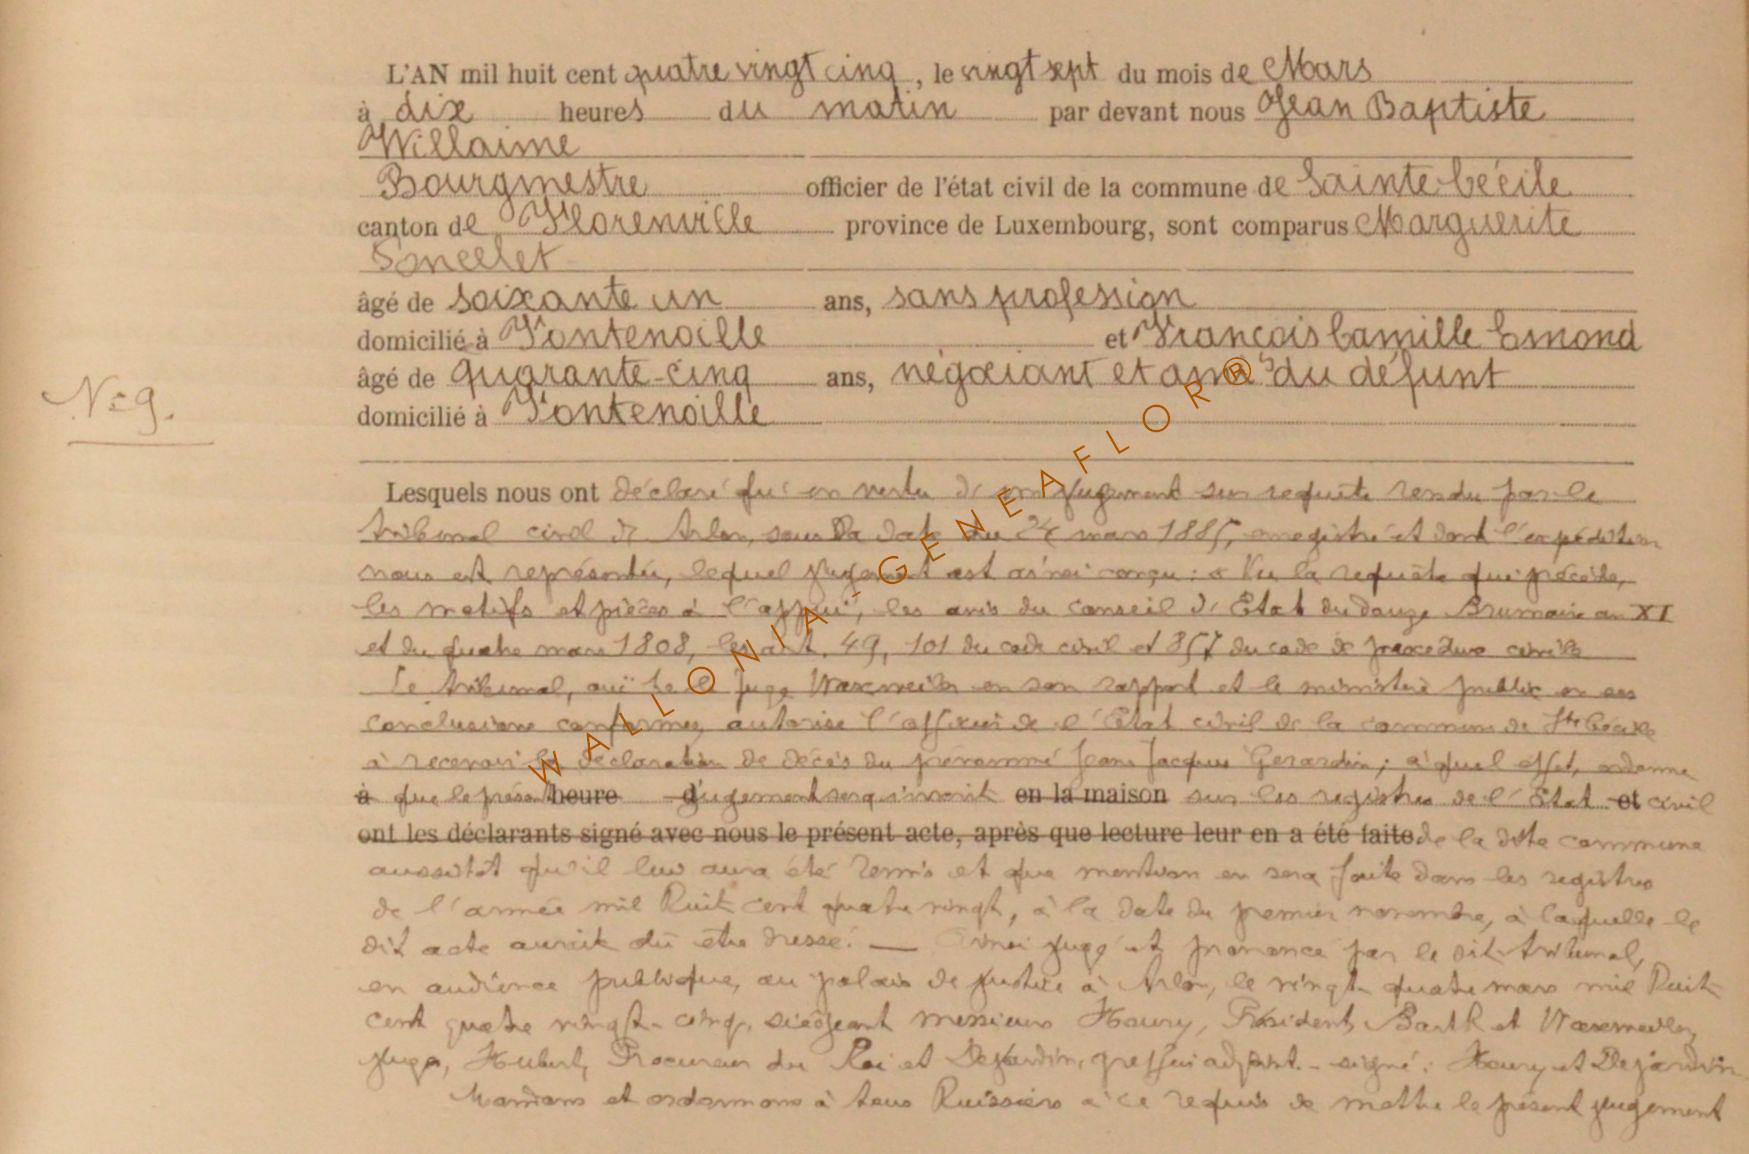 L'AN mil huit cent quatre vingt cinq, le vingt sept du mois de Mars
à dix heures du matin par devant nous Jean Baptiste
Willaime
Bourgmestre officier de l'état civil de la commune de Sainte-Cécile
canton de Florenville province de Luxembourg, sont comparus Marguerite
Poncelet
âgé de soixante un ans, sans profession
domicilié à Fontenoille et François Camille Emond
âgé de quarante-cinq ans, négociant et ami du défunt
domicilié à Fontenoille
N° 9.
Lesquels nous ont déclaré qu'en vertu d'un jugement sur requête rendu par le
tribunal civil d'Arlon, sous la date du 24 mars 1885, enregistré et dont l'expédition
nous est représentée, lequel jugement est ainsi conçu : « Vu la requête qui précède,
les motifs et pièces à l'appui, les avis du conseil d'Etat du douze Brumaire an XI
et du quatre mars 1808, les art. 49, 101 du code civil et 857 du code de procédure civile
Le tribunal, ouï le juge Waxweiler en son rapport et le ministère public en ses
conclusions conformes, autorise l'officier de l'Etat civil de la commune de Ste Cécile
à recevoir la déclaration de décès du prénommé Jean Jacques Gerardin; à quel effet, ordonne
à que le présent heure jugement sera inscrit en la maison sur les registres de l'Etat et civil
ont les déclarants signé avec nous le présent acte, après que lecture leur en a été faite de la dite commune
aussitôt qu'il leur aura été remis et que mention en sera faite dans les registres
de l'année mil huit cent quatre vingt, à la date du premier novembre, à laquelle le
dit acte aurait dû être dressé. — Ainsi jugé et prononcé par le dit tribunal,
en audience publique, au palais de justice à Arlon, le vingt-quatre mars mil huit
cent quatre vingt-cinq, siégeant messieurs Houry, Président, Barth et Waxweiler,
juges, Hubert, Procureur du Roi et Dejardin, greffier adjoint. - signé : Houry et Dejardin
Mandons et ordonnons à tous huissiers à ce requis de mettre le présent jugement
WALLONIA-GENEAFLOR®